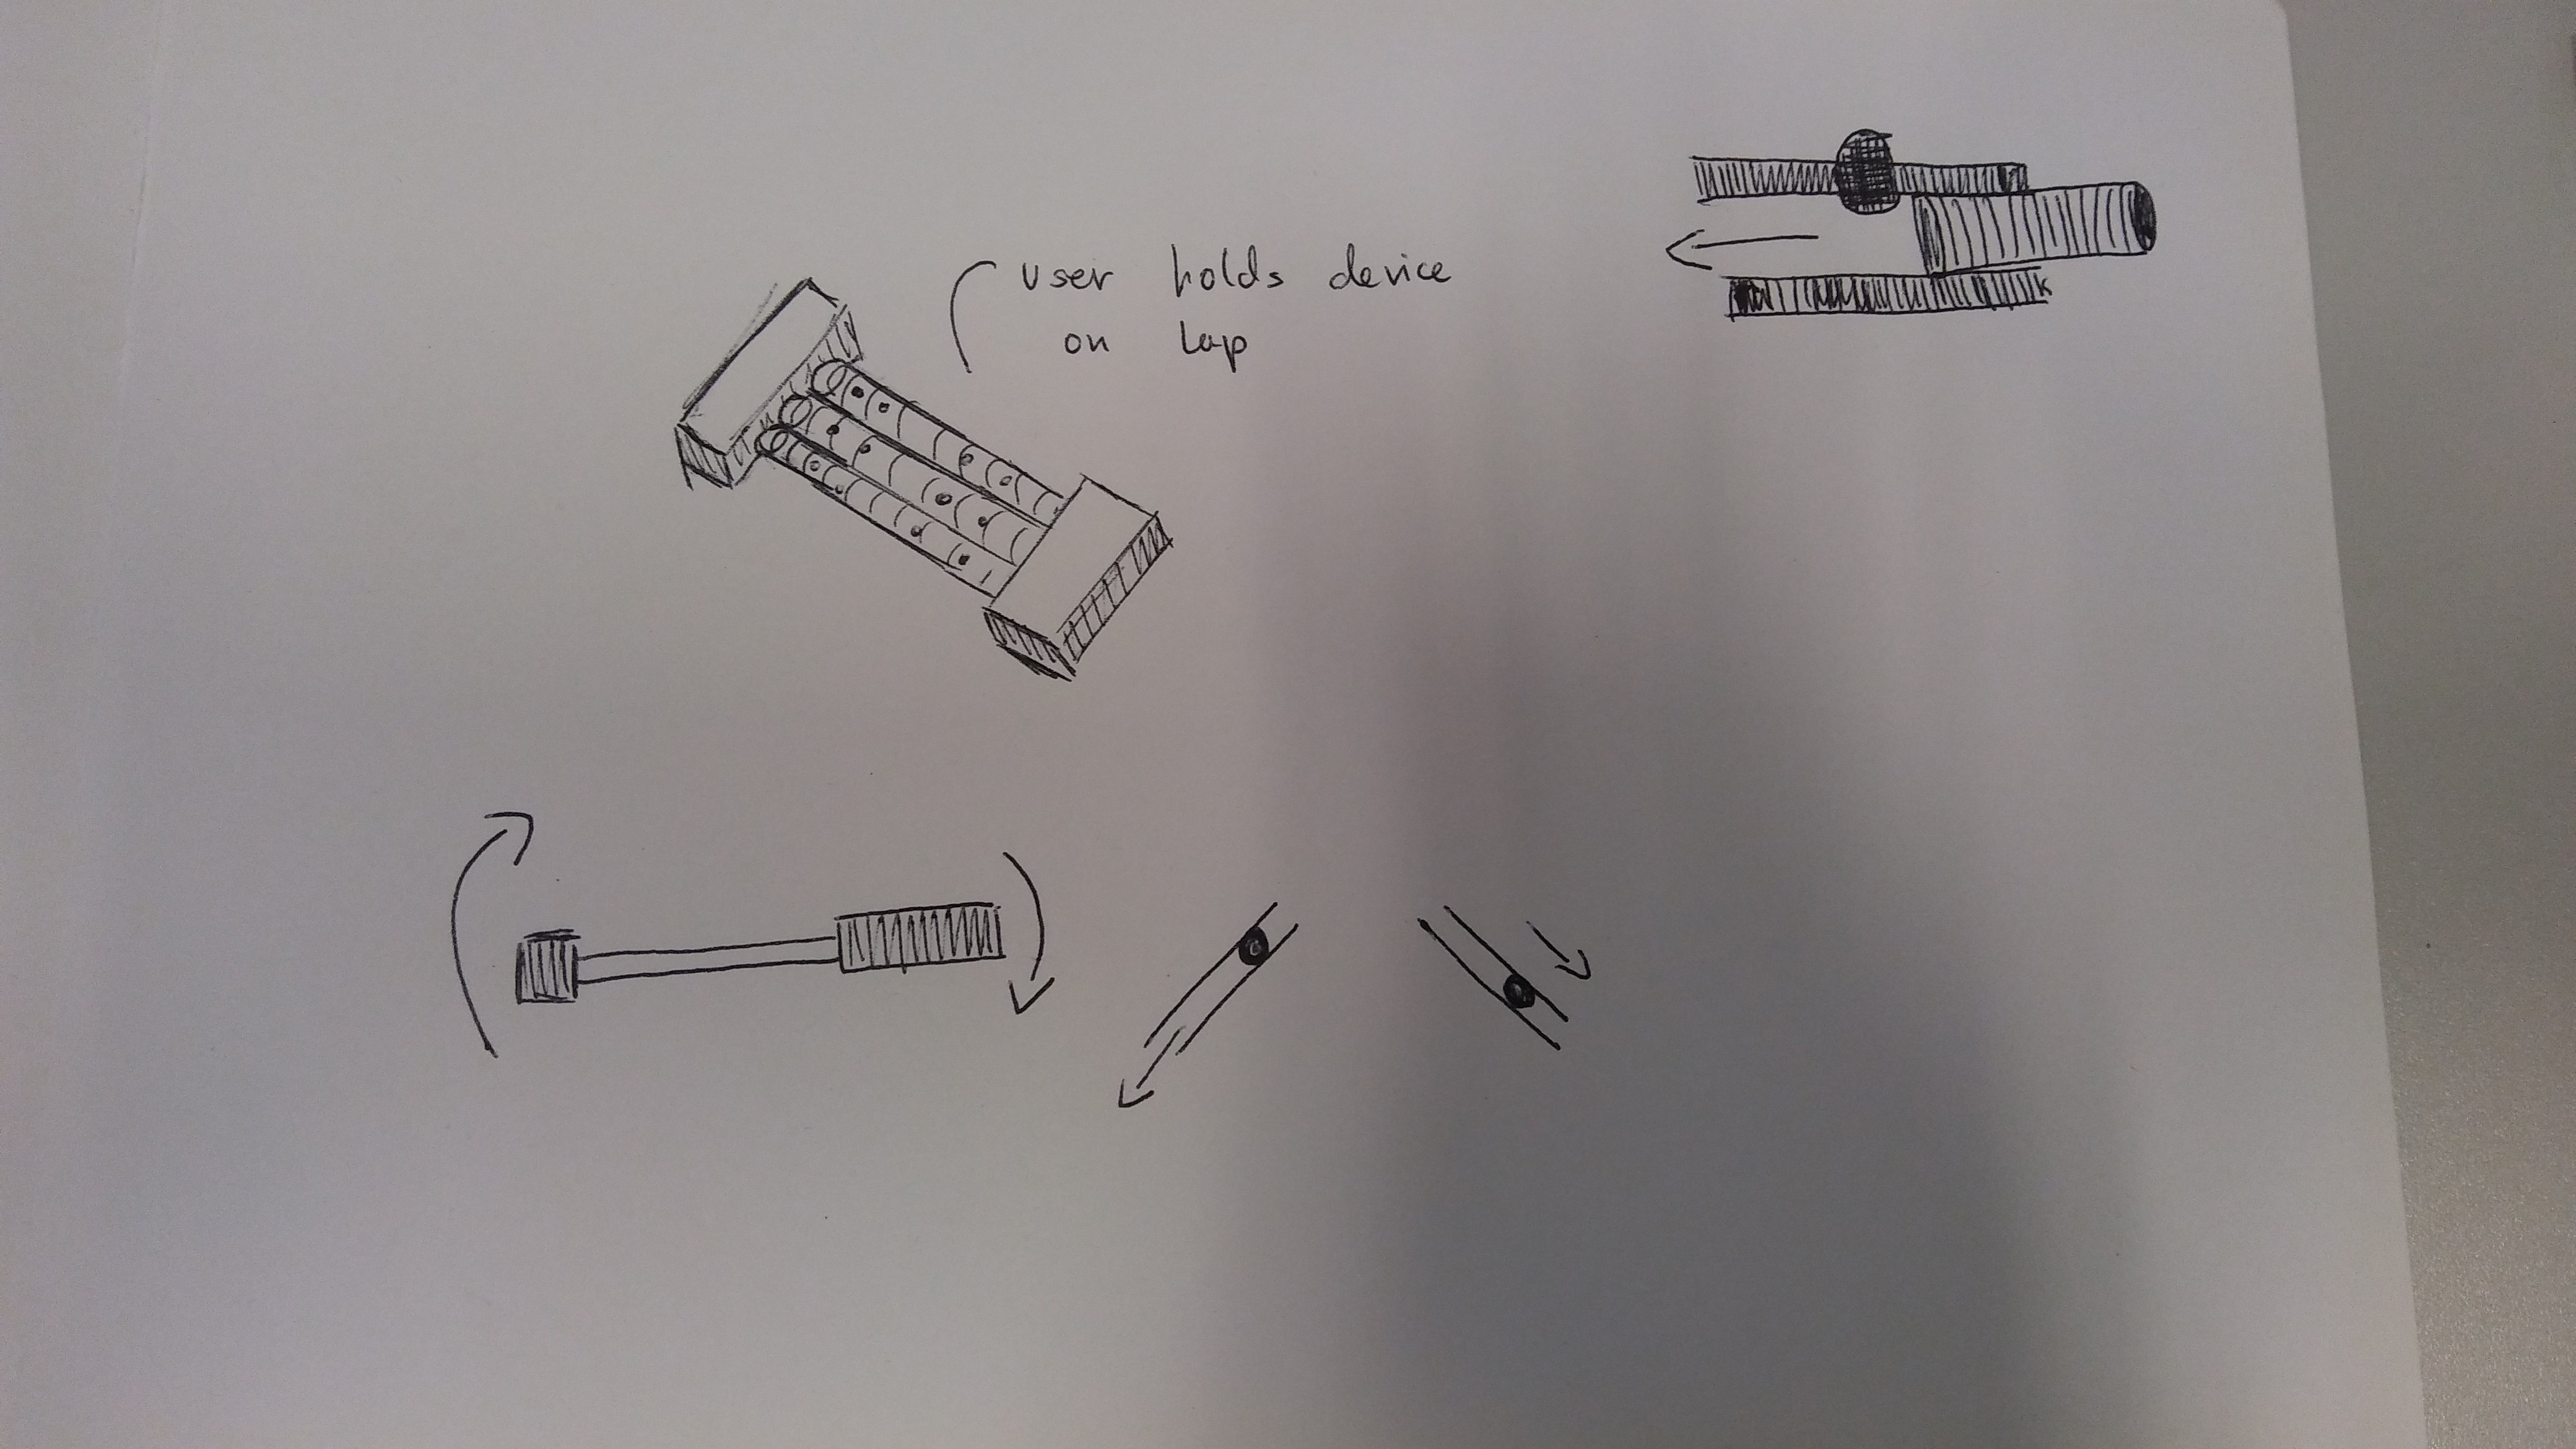 user holds device
on lap